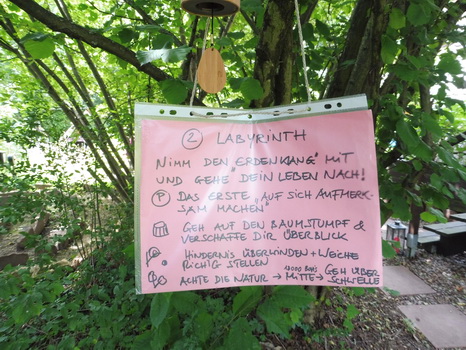 ② LABYRINTH
NIMM DEN "ERDENKLANG" MIT
UND GEHE DEIN LEBEN NACH!
DAS ERSTE "AUF SICH AUFMERK-
SAM MACHEN"
GEH AUF DEN BAUMSTUMPF &
VERSCHAFFE DIR ÜBERBLICK
HINDERNIS ÜBERWINDEN + WEICHE
RICHTIG STELLEN
ACHTE DIE NATUR → MITTE → GEH ÜBER
SCHWELLE